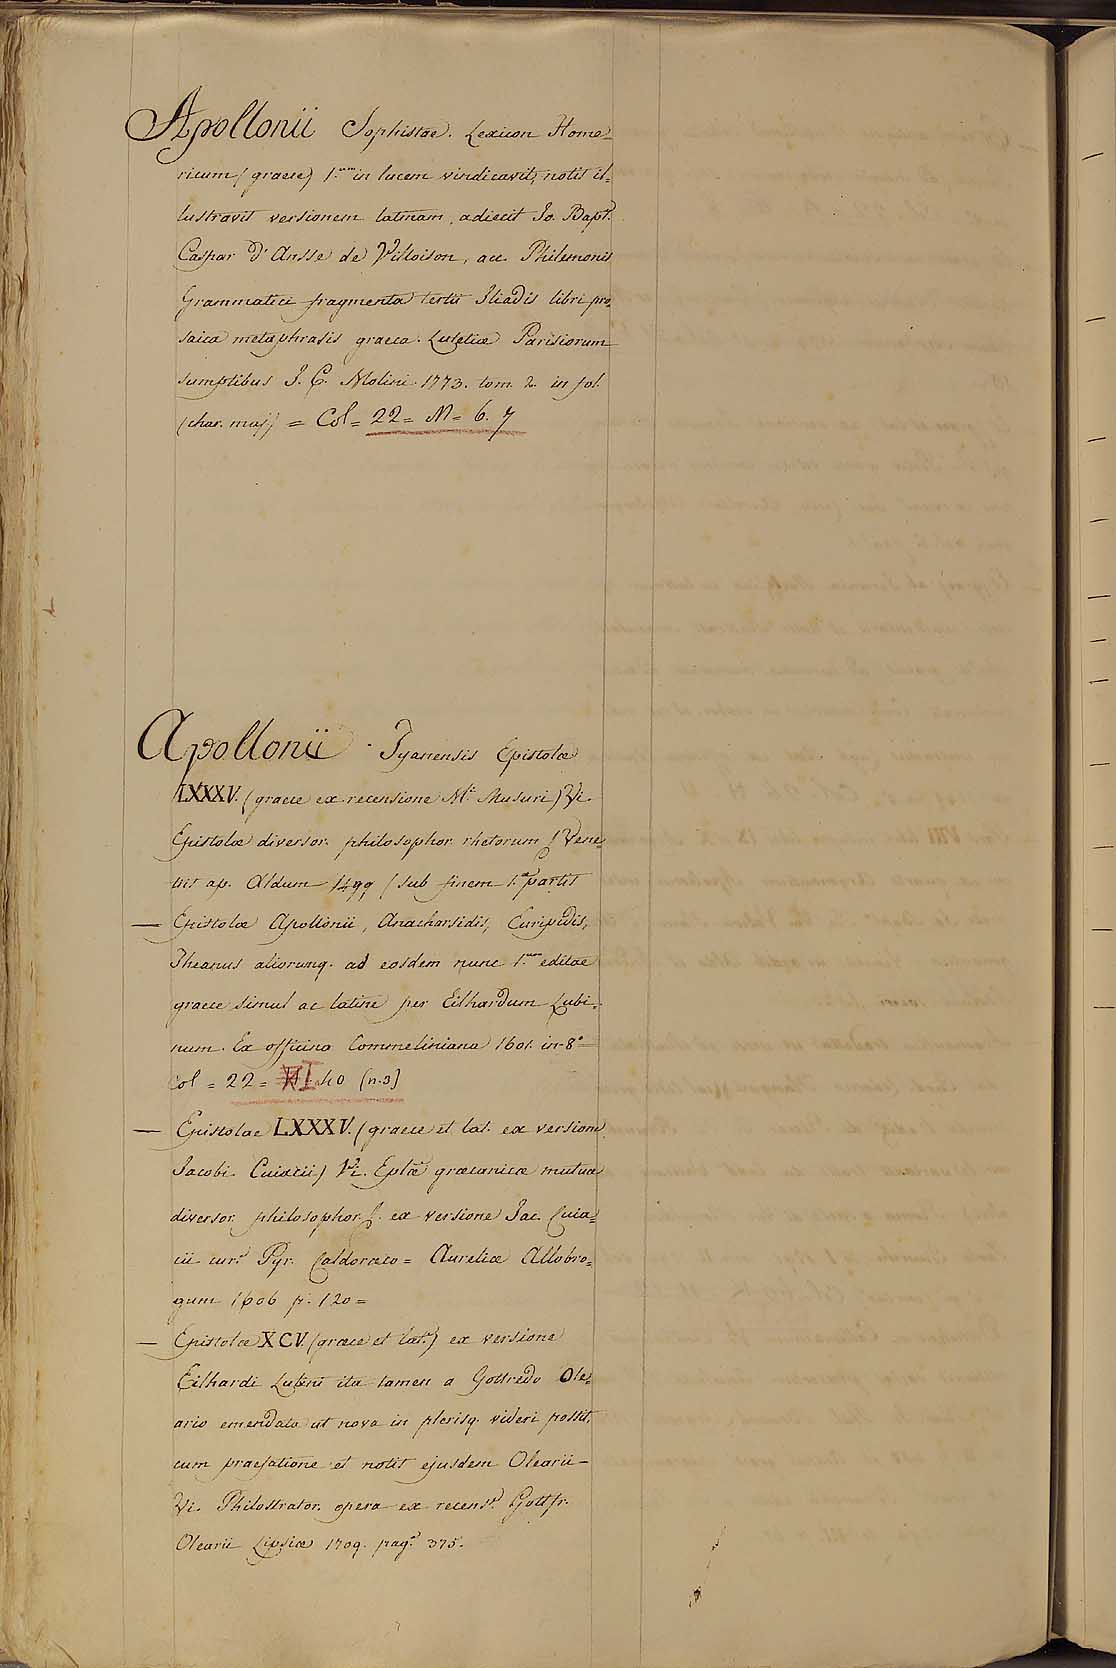 Apollonii Sophistae. Lexicon Home=
ricum (graece) 1.um in lucem vindicavit, notis il=
lustravit versionem latinam, adiecit Jo. Bapt.
Caspar d'Ansse de Villoison, acc. Philemonis
Grammatici fragmenta tertii Iliadis libri pro=
saica metaphrasis graeca. Lutetiae Parisiorum
sumptibus J. C. Molini. 1773. tom. 2. in fol.
(char. maj) = Col = 22 = M = 6. 7
Apollonii Tyanensis Epistolae
LXXXV. (graece ex recensione M. Musuri) Vi.
Epistolae diversor. philosophor. rhetorum Vene=
tiis ap. Aldum 1499 (sub finem 1.ae partis
— Epistolae Apollonii, Anacharsidis, Euripidis,
Theanus aliorumq. ad eosdem nunc 1.um editae
graece simul ac latine per Eilhardum Lubi=
num. Ex officina Commeliniana 1601. in-8°
Col = 22 = 40 (n.3)
— Epistolae LXXXV. (graece et lat. ex versione
Jacobi Cuiacii) Vi. Eplae graecanicae mutuae
diversor. philosophor. ex versione Jac. Cuia=
cii cur. Pyr. Caldoraeo = Aureliae Allobro=
gum 1606 p. 120 =
— Epistolae XCV. (graece et lat.) ex versione
Eilhardi Lubini ita tamen a Gotfredo Ole=
ario emendata ut nova in plerisq. videri possit,
cum praefatione et notis ejusdem Olearii —
Vi. Philostrator. opera ex recens. Gottfr.
Olearii Lipsiae 1709. pag. 375.